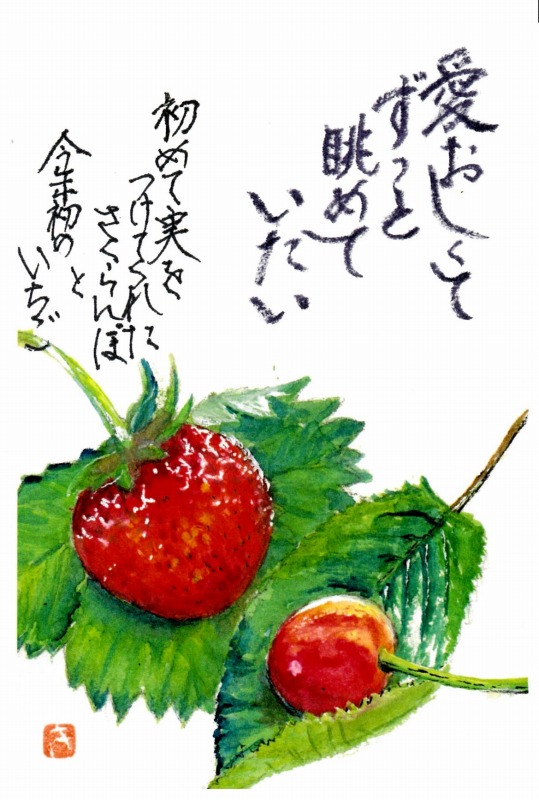 愛おしくて
ずっと
眺めて
いたい
初めて実を
つけてくれた
さくらんぼ
と
今年初の
いちご